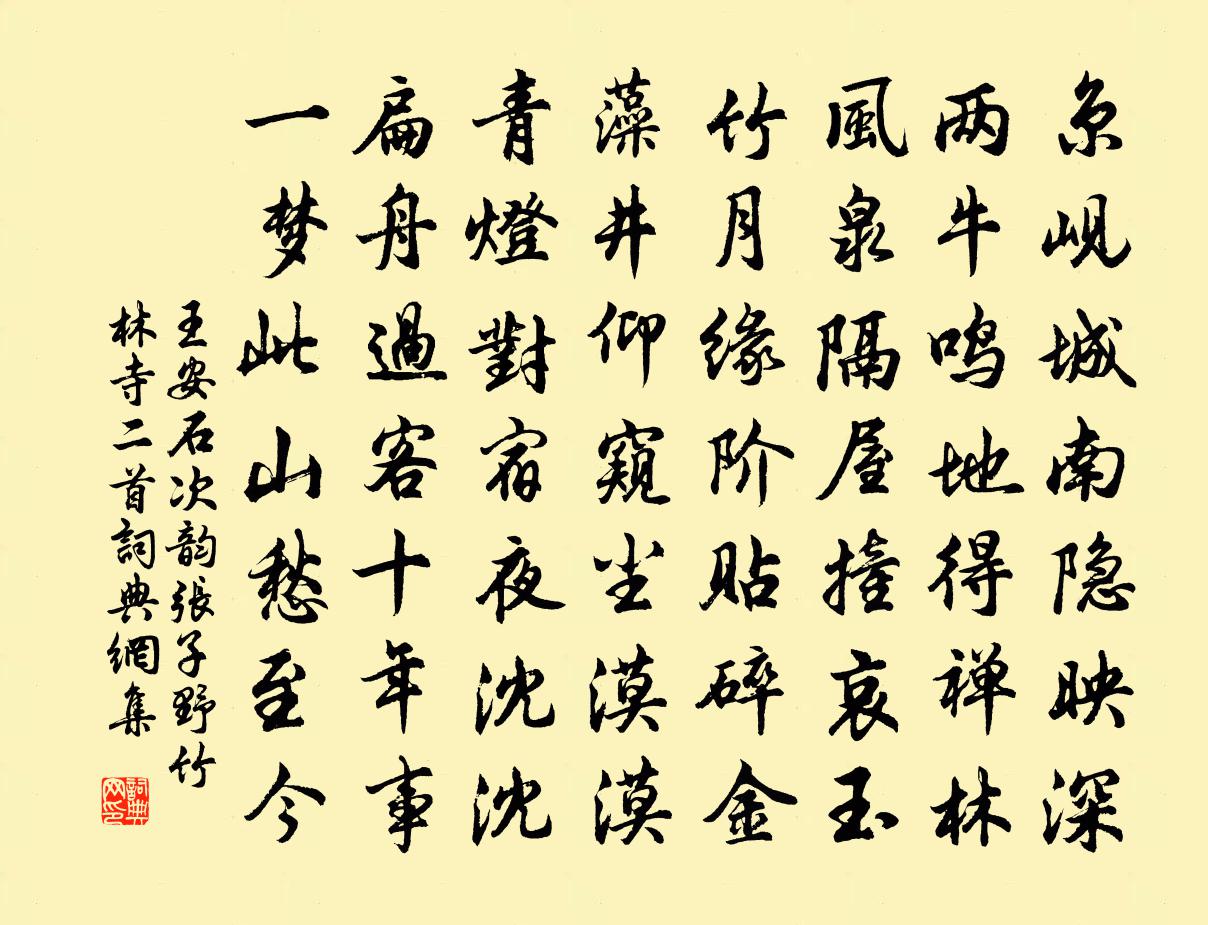 京岘城南隐映深
两牛鸣地得禅林
風泉隔屋撞哀玉
竹月缘阶贴碎金
藻井仰窺尘漠漠
青燈對宿夜沈沈
扁舟過客十年事
一梦此山愁至今
王安石次韵張子野竹
林寺二首詞典網集
詞典网印